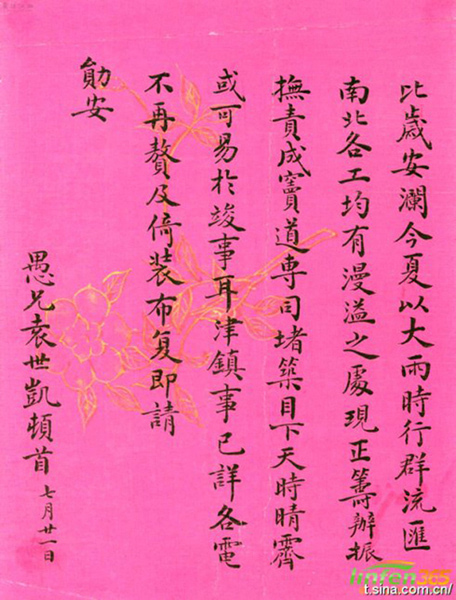 比歲安瀾今夏以大雨時行群流匯
南北各工均有漫溢之處現正籌辦振
撫責成竇道專司堵築目下天時晴霽
或可易於竣事耳津鎮事已詳各電
不再贅及倚裝布复即請
勛安
愚兄袁世凱頓首 七月廿一日
linfen365
t.sina.com.cn/